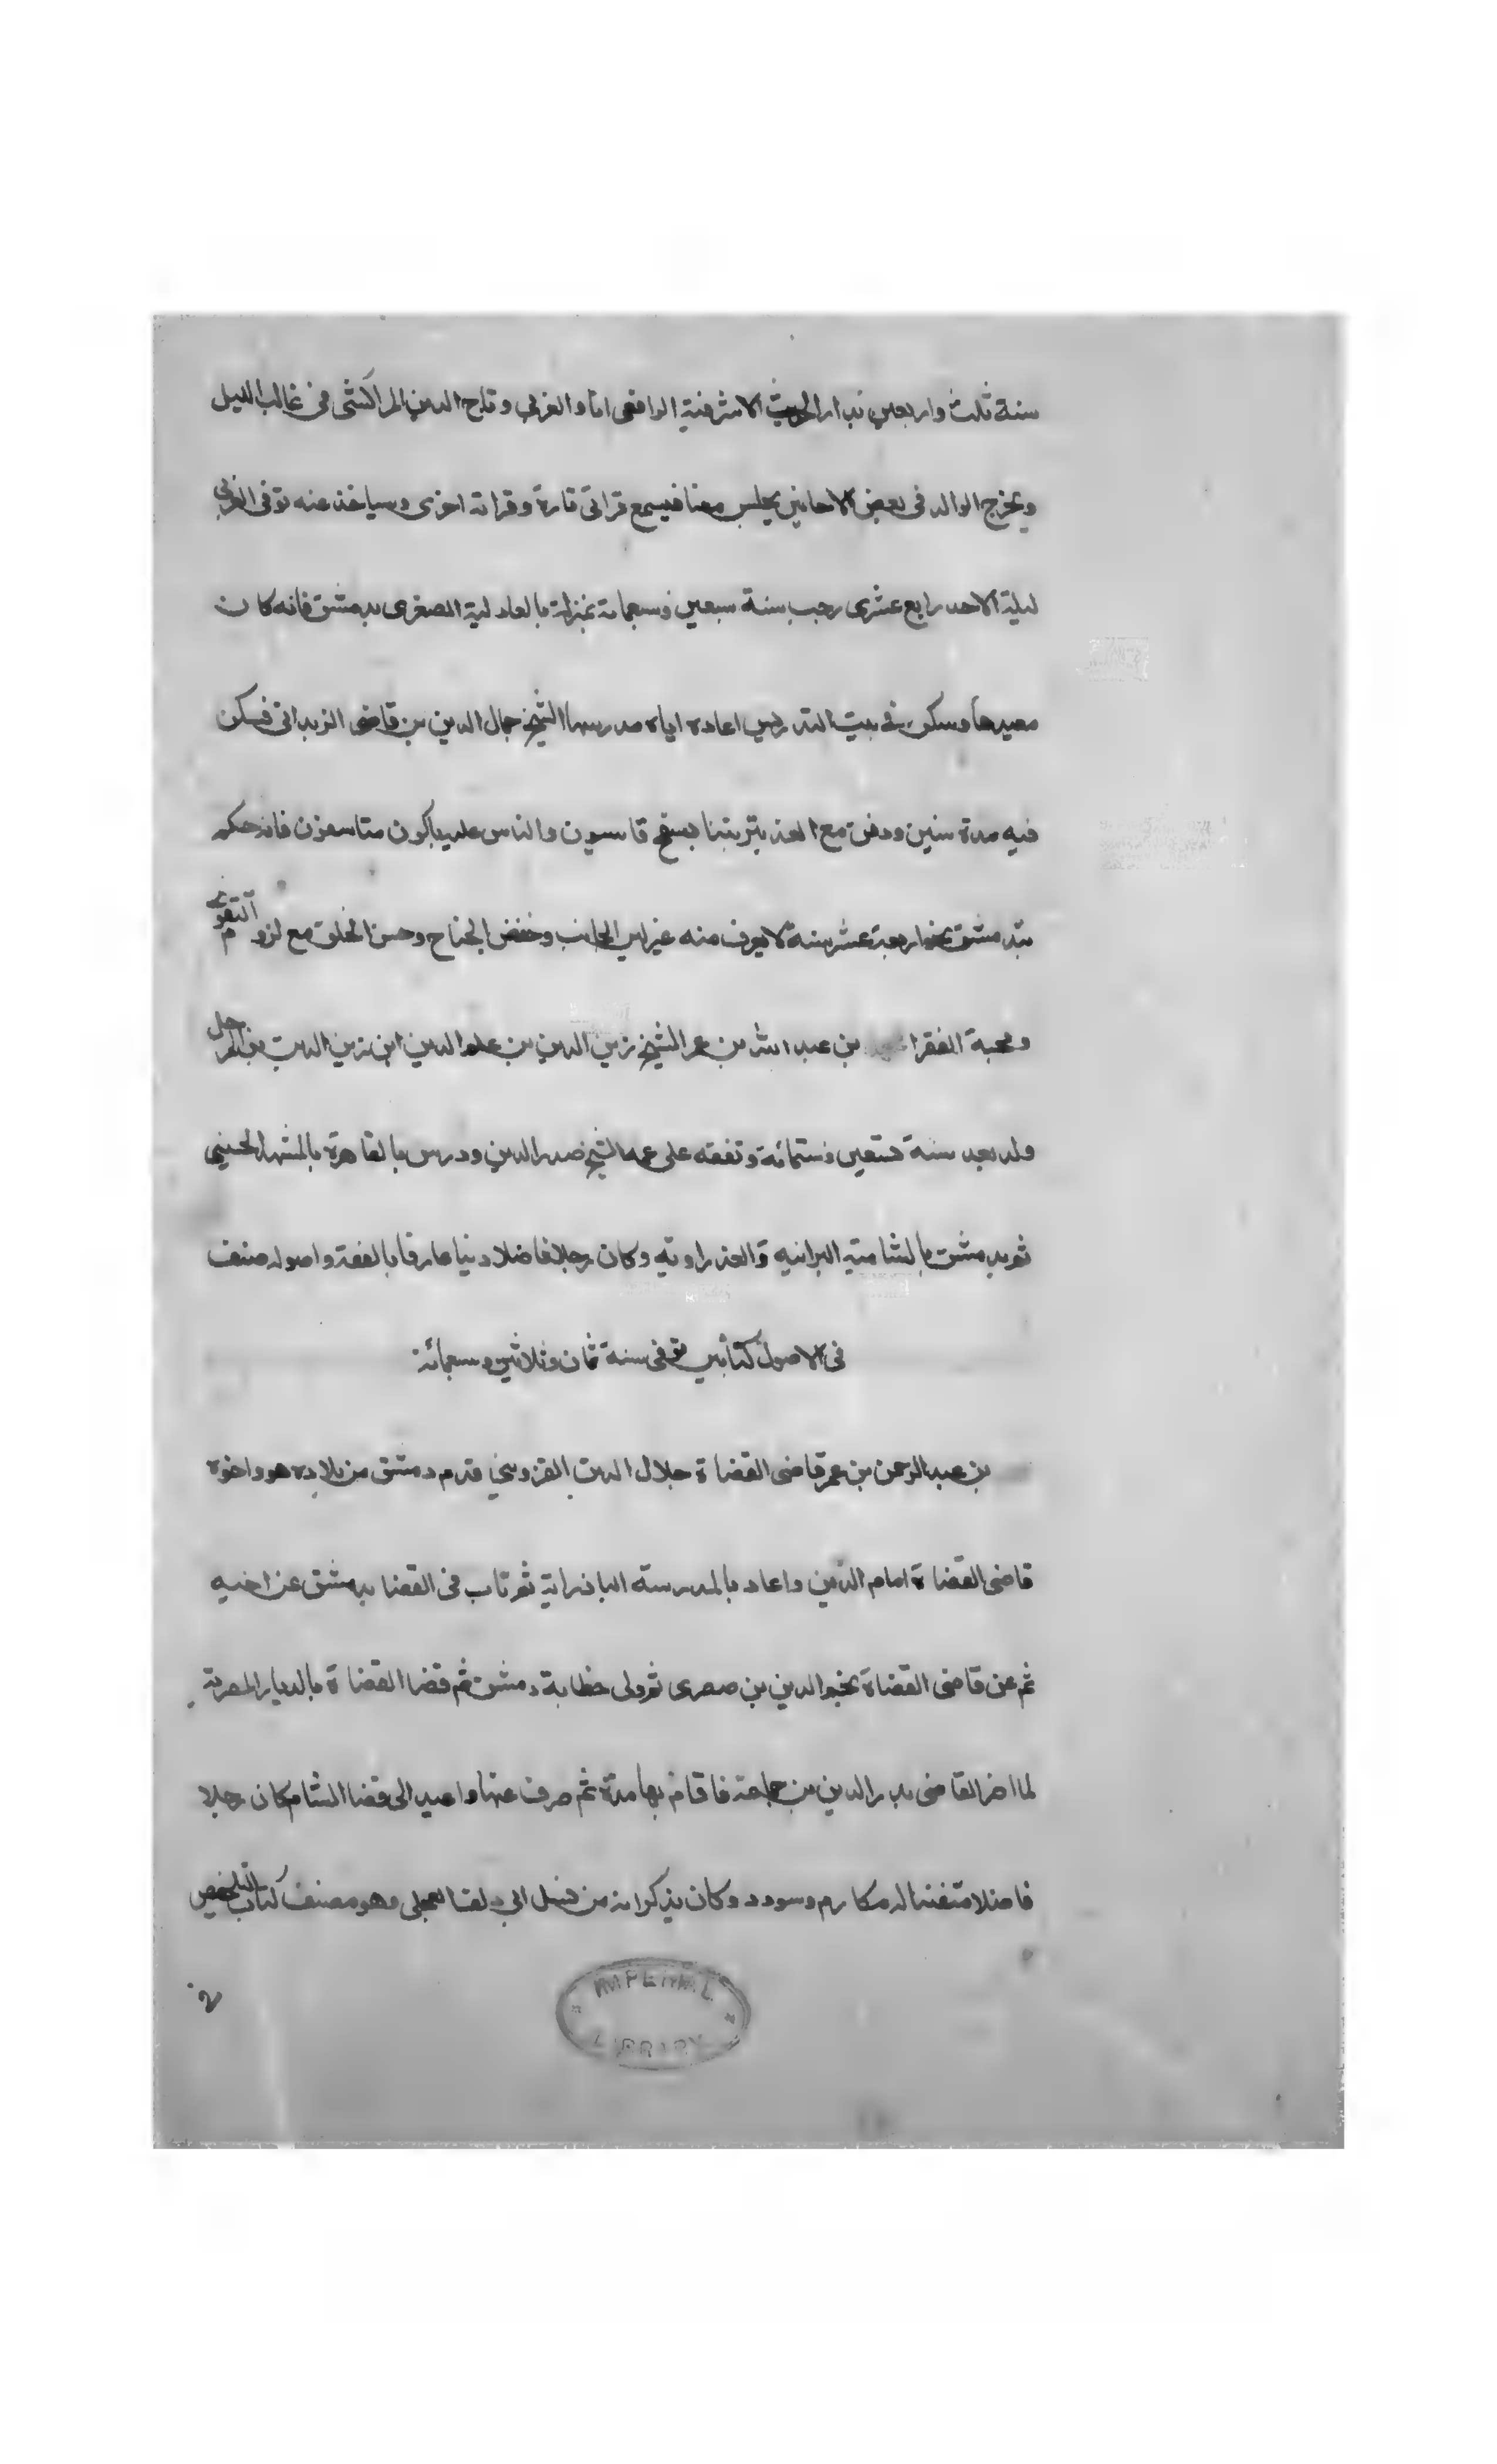 سنة ثلث واربعين بدار الحديث الاشرفية الرافعى انا والغزي وتاج الدين المراكشى فى غالب الليل
ويخرج الوالد فى بعض الاحايين يجلس معنا فيسمع قراتى تارة وقراته اخرى وسياخذ عنه توفى الغزي
ليلة الاحد رابع عشرى رجب سنة سبعين وسبعماته بمنزلة بالعادلية الصغرى بدمشق فانه كان
معيدها وسكن فى بيت التدريس اعاده اياه مدرسها الشيخ جمال الدين بن قاضى الزبدانى فسكن
فيه مدة سنين ودفن مع الغد بتربتنا بسفح قاسيون والناس عليه باكون متاسفون فانه حكم
بدمشق نحو اربعة عشر سنة لا يعرف منه غير لين الجانب وخفض الجناح وحسن الخلق مع لزوم التقوى
ومحبة الفقرا بن عبد الله بن عمر الشيخ زين الدين بن علم الدين ابن زين الدين بن المرحل
ولد بعد سنة تسعين وستمائة وتفقه على عمه الشيخ صدر الدين ودرس بالقاهرة بالمشهد الحسينى
ثم بدمشق بالشامية البرانيه والعذراوية وكان رجلا فاضلا دينا عارفا بالفقه واصوله صنف
فى الاصول كتابين توفى سنة ثمان وثلاثين وسبعمائة
بن عبد الرحمن بن عمر قاضى القضاة جلال الدين القزوينى قدم دمشق من بلاده هو واخوه
قاضى القضاة امام الدين واعاد بالمدرسة الباذراية ثم ناب فى القضا بدمشق عن اخيه
ثم عن قاضى القضاة نجم الدين بن صصرى ثم ولى خطابة دمشق ثم قضا القضاة بالديار المصرية
لما اضر القاضى بدر الدين بن جماعة فاقام بها مدة ثم صرف عنها واعيد الى قضا الشام كان رجلا
فاضلا متفننا له مكارم وسودد وكان يذكر انه من نسل ابى دلف العجلى وهو مصنف كتاب التلخيص
فى
IMPERIAL LIBRARY